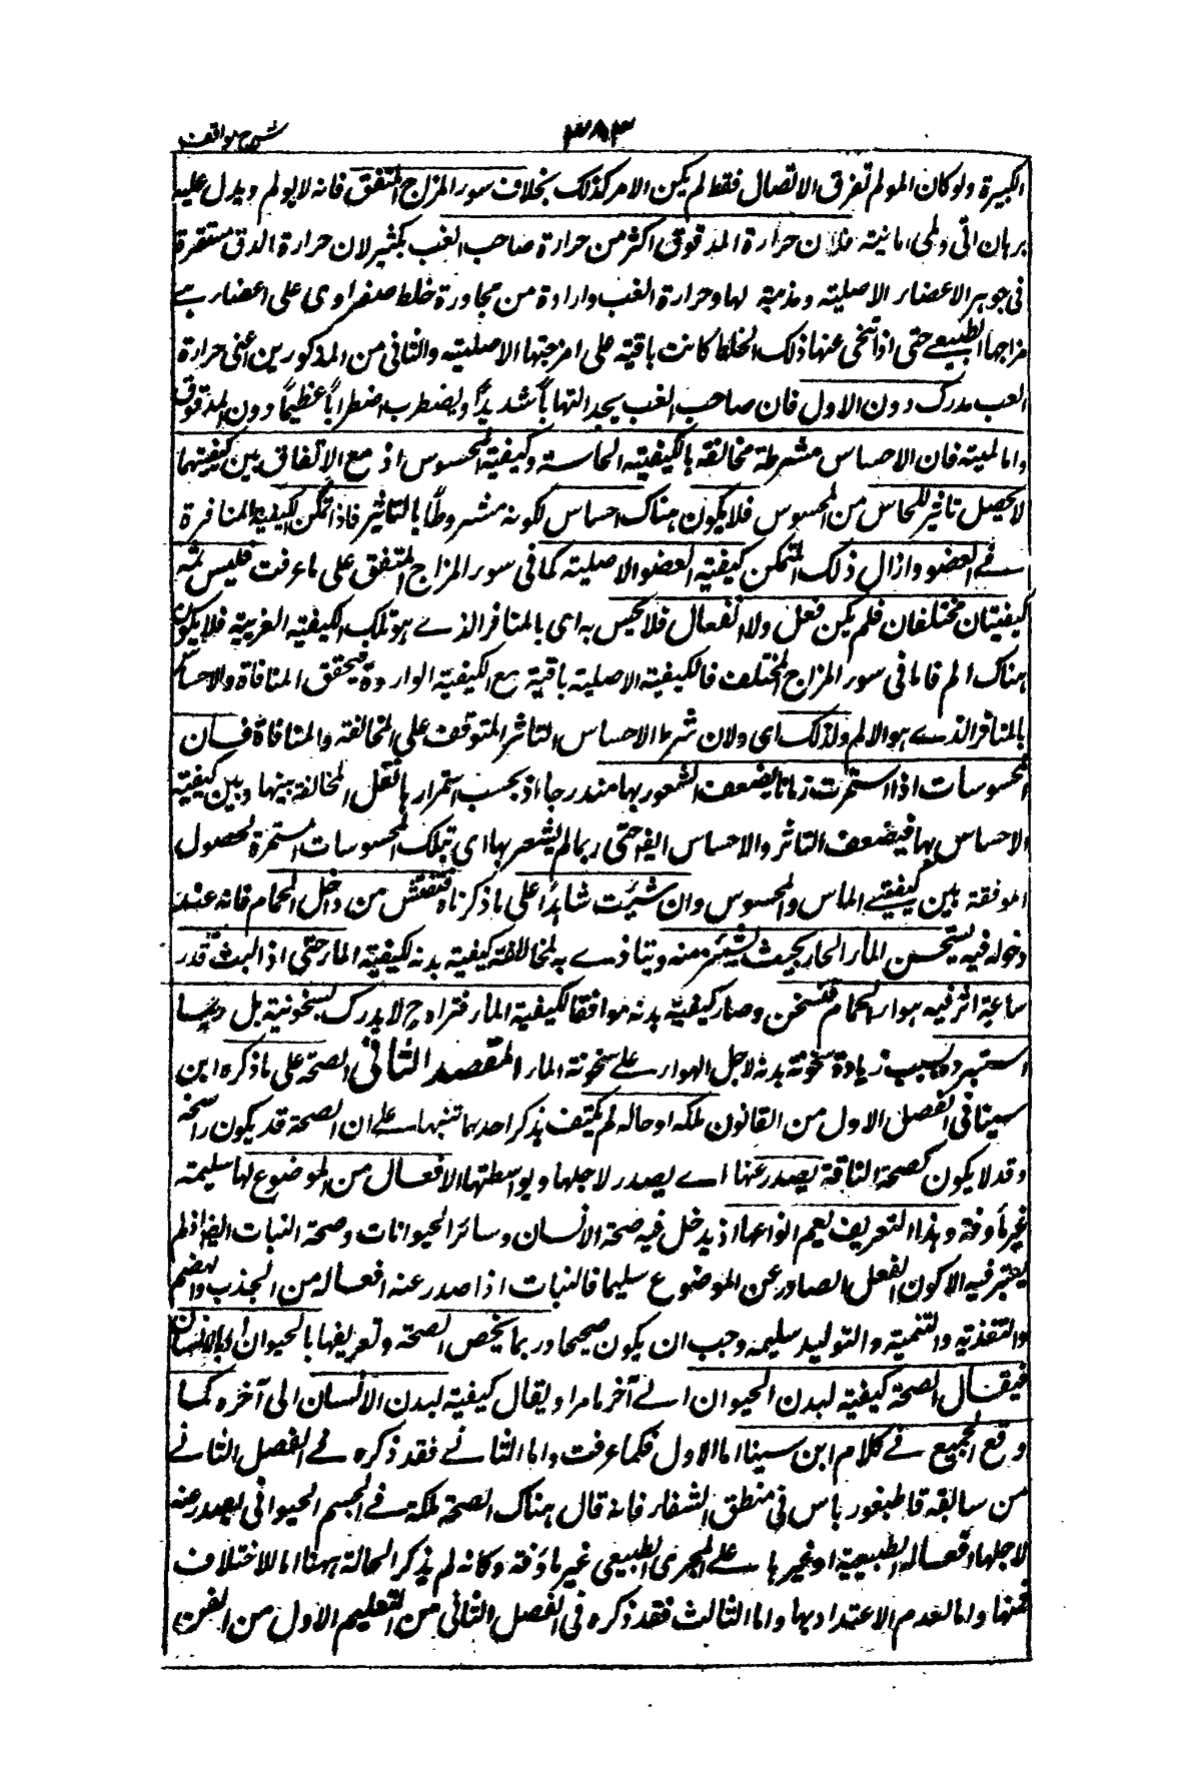 شرح مواقف
٣٨٣
الكبيرة ولو كان المولم تفرق الاتصال فقط لم يكن الامر كذلك بخلاف سور المزاج المتفق فانه لا يولم ويدل عليه
برهان انى ولمى اما انيته فلان حرارة المدقوق اكثر من حرارة صاحب الغب بكثير لان حرارة الدق مستقرة
فى جوهر الاعضار الاصليته ومذمبة لها وحرارة الغب واردة من مجاورة خلط صفراوى على اعضار
مزاجها الطبيعے حتى اذا تنحى عنها ذلك الخلط كانت باقيته على امزجتها الاصليته والثانى من المذكورين اعنى حرارة
الغب مدرك دون الاول فان صاحب الغب يجد التهاباً شديداً ويضطرب اضطراباً عظيماً دون المدقوق
واما لميته فان الاحساس مشرطه مخالفة بالكيفيته الحاسة وكيفية المحسوس اذ مع الاتفاق بين كيفيتهما
لا يحصل تاثير للحاس من المحسوس فلا يكون هناك احساس لكونه مشروطاً بالتاثير فاذا تمكن الكيفية المنافرة
فے العضو وازال ذلك المتمكن كيفيته العضو الاصليته كما فى سور المزاج المتفق على ما عرفت فليس ثمه
كيفيتان مختلفان فلم يكن فعل ولا انفعال فلا يحس به اى بالمنافر الذے هو تلك الكيفيته الغريبة فلا يكون
هناك الم فاما فى سور المزاج المختلف فالكيفيته الاصليته باقية مع الكيفيته الواردة فيتحقق المنافاة والاحساس
بالمنافر الذے هو الالم ولذلك اى ولان شرط الاحساس التاثر المتوقف على المخالفة والمنافاة فان
المحسوسات اذا استمرت زمانا يضعف الشعور بها متدرجا اذ بحسب استمرارها تقل المخالفة بينها وبين كيفية
الاحساس بها فيضعف التاثر والاحساس ايضا حتى ربما لم يشعر بها اى بتلك المحسوسات المستمرة لحصول
الموفقة بين كيفيتے الماس والمحسوس وان شيئت شاهداً على ما ذكرناه فتفتش من دخل الحمام فانه عند
دخوله فيه يستحسن المار الحار بحيث يشمئز منه ويتاذے به لمخالفة كيفية بدنه لكيفيته المار حتى اذا لبث قدر
ساعة اثر فيه هوار الحمام فتسخن وصار كيفية بدنه موافقا لكيفية المار فتراه ح لا يدرك سخونية بل ربما
استبرده بسبب زيادة سخونة بدنه لاجل الهوار علے سخونة المار المقصد الثانى الصحة على ما ذكره ابن
سينا فى الفصل الاول من القانون ملكه او حاله لم يكتف بذكر احدهما تنبيها علے ان الصحة قد يكون راسخة
وقد لا يكون كصحة الناقة يصدر عنها اے يصدر لاجلها وبواسطتها الافعال من الموضوع لها سليمته
غير مأوفة وهذا التعريف يعم انواعها اذ يدخل فيه صحة الانسان وسائر الحيوانات وصحة النبات ايضا اذ لم
يعتبر فيه الا كون الفعل الصادر عن الموضوع سليما فالنبات اذا صدر عنه افعاله من الجذب والهضم
والتغذية والتنمية والتوليد سليمه وجب ان يكون صحيحا وربما يخص الصحة وتعريفها بالحيوان او بالانسان
فيقال الصحة كيفية لبدن الحيوان الے آخر ما مر او يقال كيفية لبدن الانسان الى آخره كما
وقع الجميع فے كلام ابن سينا اما الاول فكما عرفت واما الثانے فقد ذكره فے الفصل الثانے
من سابقه قاطيغورياس فى منطق الشفار فانه قال هناك الصحة ملكة فے الجسم الحيوانى يصدر عنه
لاجلها افعاله الطبيعية او غيرها علے المجرى الطبيعى غير ماؤفة وكانه لم يذكر الحالة ههنا اما للاختلاف
فيها واما لعدم الاعتداد بها واما الثالث فقد ذكره فى الفصل الثانى من التعليم الاول من الفن